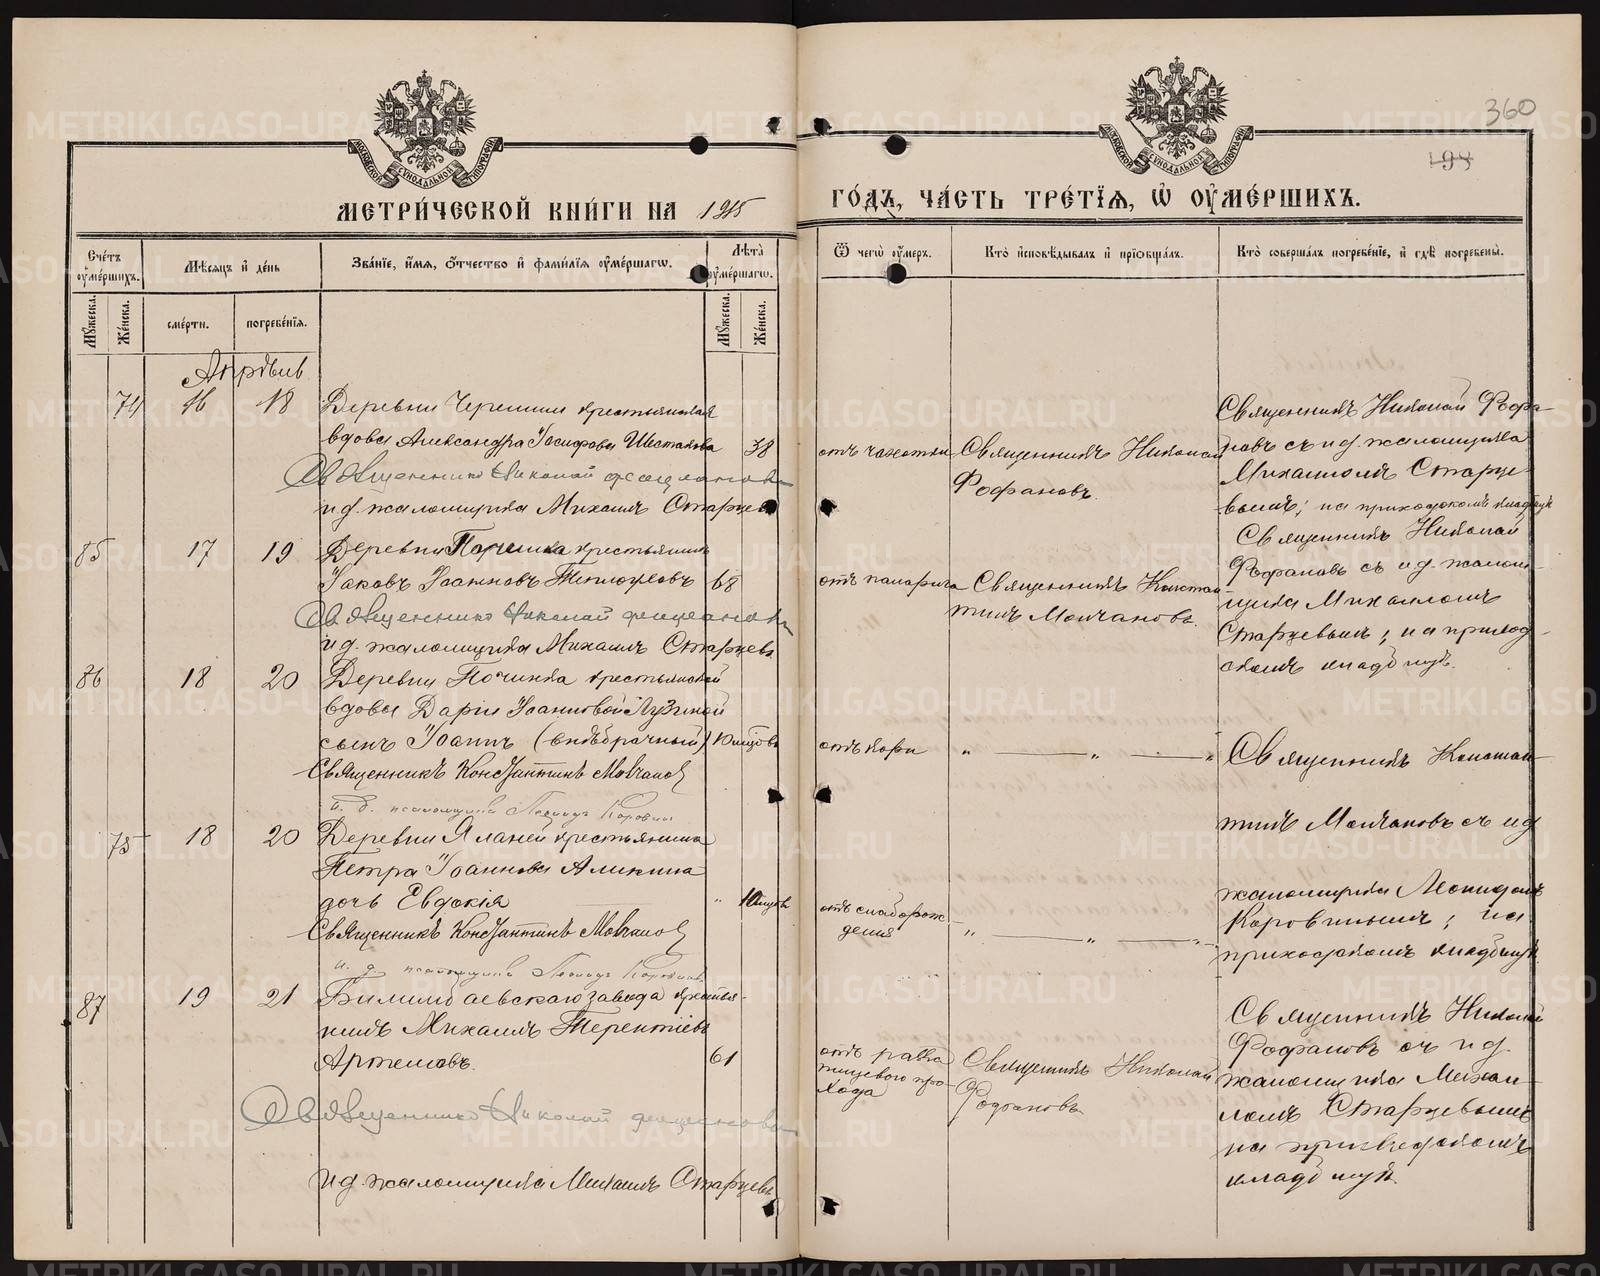 360
198
МЕТРИЧЕСКОЙ КНИГИ НА 1915 ГОДЪ, ЧАСТЬ ТРЕТІЯ, Ѿ ОУМЕРШИХЪ.
Счетъ оумершихъ.
Мѣсяцъ и день
Званіе, имя, отчество и фамилія оумершагѡ.
Лѣта оумершагѡ.
Ѿ чегѡ оумеръ.
Кто исповѣдывалъ и пріобщалъ.
Кто совершалъ погребеніе, и гдѣ погребены.
Мужеска.
Женска.
смерти.
погребенія.
Мужеска.
Женска.
Апрѣль
74 16 18
Деревни Черемши крестьянская
вдова Александра Іосифова Шестакова 38
Священникъ Николай Фофановъ
и д. псаломщика Михаилъ Старцевъ
отъ чахотки
Священникъ Николай
Фофановъ.
Священникъ Николай Фофа-
новъ съ и д. псаломщика
Михаиломъ Старце-
вымъ; на приходскомъ кладбищѣ
85 17 19
Деревни Починка крестьянинъ
Іаковъ Іоанновъ 68
Священникъ Николай Фофановъ
и д. псаломщика Михаилъ Старцевъ
отъ паралича
Священникъ Констан
тинъ Молчановъ.
Священникъ Николай
Фофановъ съ и д. псалом-
щика Михаиломъ
Старцевымъ; на приход-
скомъ кладбищѣ.
86 18 20
Деревни Починка крестьянской
вдовы Даріи Іоанновой Лузиной
сынъ Іоаннъ (внѣбрачный) 10 мѣсцовъ
Священникъ Константинъ Молчановъ
и. д. псаломщика Леонидъ Коровинъ
отъ кори
" — " — "
Священникъ Констан-
тинъ Молчановъ съ и д
псаломщика Леонидомъ
Коровинымъ; на
приходскомъ кладбищѣ.
75 18 20
Деревни Яланей крестьянина
Петра Іоаннова Аликина
дочь Евдокія " 10 мѣсцовъ
Священникъ Константинъ Молчановъ
и. д. псаломщика Леонидъ Коровинъ
отъ слаборож-
денія
" — " — "
87 19 21
Билимбаевскаго завода крестья-
нинъ Михаилъ Терентіевъ
Артемовъ. 61
Священникъ Николай Фофановъ
и д. псаломщика Михаилъ Старцевъ
отъ рака
пищевого про-
хода
Священникъ Николай
Фофановъ
Священникъ Николай
Фофановъ съ и д.
псаломщика Михаи-
ломъ Старцевымъ
на приходскомъ
кладбищѣ.